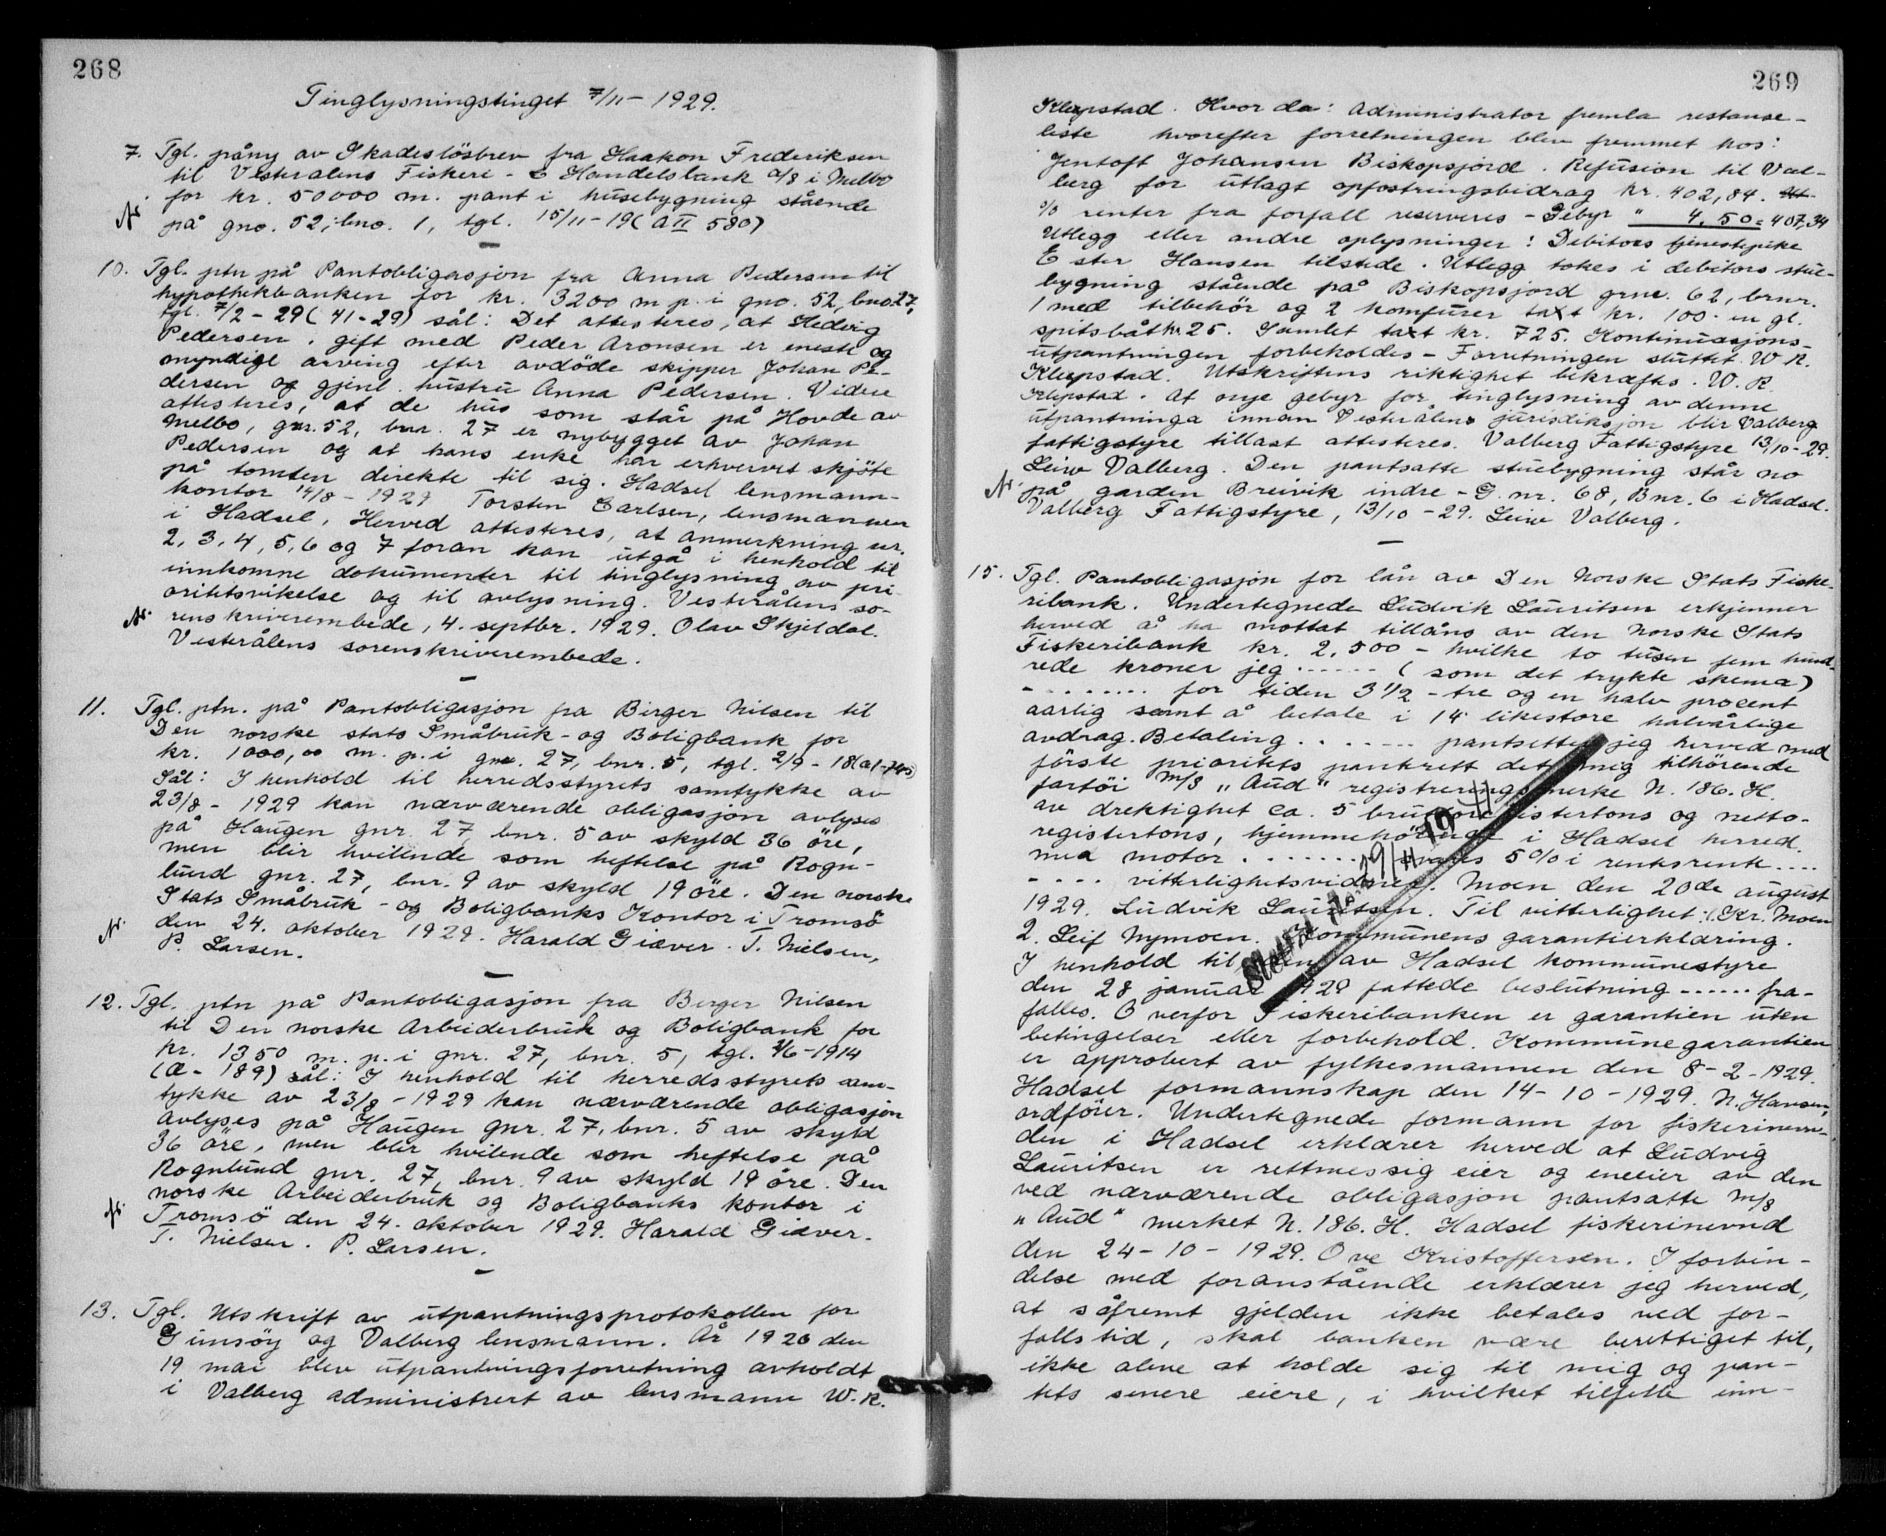 268
Tinglysningstinget 7/11 - 1929.
7. Tgl. påny av Skadeslösbrev fra Haakon Frederiksen
til Vesterålens Fiskeri - & Handelsbank a/s i Melbo
for kr. 50000 m. pant i husebygning stående
på gno. 52, bno. 1, tgl. 15/11-19 (A II 580)
10. Tgl. ptn på Pantobligasjon fra Anna Pedersen til
hypothekbanken for kr. 3200 m p. i gno. 52, bno. 27,
tgl. 7/2 - 29 (41-29) sål: Det attesteres, at Hedvig
Pedersen, gift med Peder Aronsen er eneste og
myndige arving efter avdöde skipper Johan Pe-
dersen og gjenl. hustru Anna Pedersen. Videre
attesteres, at de hus som står på Hovde av
Melbo, gnr. 52, bnr. 27 er nybygget av Johan
Pedersen og at hans enke har erhvervet skjöte
på tomten direkte til sig. Hadsel lensmann-
kontor 14/8 - 1929 Torsten Carlsen, lensmannen
i Hadsel. Herved attesteres, at anmerkning nr.
2, 3, 4, 5, 6 og 7 foran kan utgå i henhold til
innkomne dokumenter til tinglysning av pri-
oritetsvikelse og til avlysning. Vesterålens so-
renskriverembede, 4. septbr. 1929. Olav Skjeldal.
Vesterålens sorenskriverembede.
11. Tgl. ptn. på Pantobligasjon fra Birger Nilsen til
Den norske stats Småbruk- og Boligbank for
kr. 1000,00 m. p. i gnr. 27, bnr. 5, tgl. 2/9 - 18
Sål: I henhold til herredsstyrets samtykke av
23/8 - 1929 kan nærværende obligasjon avlyses
på Haugen gnr. 27, bnr. 5 av skyld 36 öre,
men blir hvilende som heftelse på Rogn-
lund gnr. 27, bnr. 9 av skyld 19 öre. Den norske
Stats Småbruk - og Boligbanks Kontor i Tromsö
den 24. oktober 1929. Harald Giæver. T. Nielsen,
P. Larsen.
12. Tgl. ptn på Pantobligasjon fra Birger Nilsen
til Den norske Arbeiderbruk og Boligbank for
kr. 1350 m. p. i gnr. 27, bnr. 5, tgl. 4/6-1914
(A - 189) sål: I henhold til herredsstyrets sam-
tykke av 23/8 - 1929 kan nærværende obligasjon
avlyses på Haugen gnr. 27, bnr. 5 av skyld
36 öre, men blir hvilende som heftelse på
Rognlund gnr. 27, bnr. 9 av skyld 19 öre. Den
norske Arbeiderbruk og Boligbanks kontor i
Tromsö den 24. oktober 1929. Harald Giæver.
T. Nielsen. P. Larsen.
13. Tgl. Utskrift av utpantningsprotokollen for
Gimsöy og Valberg lensmann. År 1926 den
19 mai blev utpantningsforretning avholdt
i Valberg administrert av lensmann W. R.
269
Klepstad. Hvor da: Administrator fremla restanse-
liste hvorefter forretningen blev fremmet hos:
Jentoft Johansen Biskopsjord. Refusion til Val-
berg for utlagt opfostringsbidrag kr. 402,84.
% renter fra forfall reserveres - Gebyr " 4,50 = 407,34
Utlegg eller andre oplysninger: Debitors tjenestepike
Ester Hansen tilstede. Utlegg tokes i debitors stue-
bygning stående på Biskopsjord grnr. 62, brnr.
1 med tilbehör og 2 komfurer taxt kr. 100. en gl.
spitsbåt kr. 25. Samlet taxt kr. 725. Kontinuasjons-
utpantningen forbeholdes - Forretningen sluttet. W. R.
Klepstad. Utskriftens riktighet bekræftes. W. R.
Klepstad. At nye gebyr for tinglysning av denne
utpantninga innan Vesterålens jurisdiksjon blir Valberg
fattigstyre tillast attesteres. Valberg Fattigstyre 13/10 - 29.
Leiv Valberg. Den pantsatte stuebygning står no
på garden Breivik indre - G. nr. 68, Bnr. 6 i Hadsel.
Valberg Fattigstyre, 13/10 - 29. Leiv Valberg.
15. Tgl. Pantobligasjon for lån av Den Norske Stats Fiske-
ribank. Undertegnede Ludvik Lauritsen erkjenner
herved å ha mottat tillåns av den Norske Stats
Fiskeribank kr. 2,500 - hvilke to tusen fem hund-
rede kroner jeg ...... (som det trykte skema)
- ........ for tiden 3 1/2 - tre og en halv procent
aarlig samt å betale i 14 likestore halvårlige
avdrag. Betaling ....... pantsetter jeg herved med
förste prioritets pantrett det mig tilhörende
fartöi m/s "Aud" registreringsmerke N. 186. H.
av drektighet ca. 5 bruttoregistertons og netto-
registertons, hjemmehörende i Hadsel herred.
med motor ....... svares 5% i rentersrente ....
- .... vitterlighetsvidner. Moen den 20de august
1929. Ludvik Lauritsen. Til vitterlighet: 1. Kr. Moen
2. Leif Nymoen. Kommunens garantierklæring.
I henhold til den av Hadsel kommunestyre
den 28 januar 1929 fattede beslutning ...... fra-
falles. Overfor Fiskeribanken er garantien uten
betingelser eller forbehold. Kommunegarantien
er approbert av fylkesmannen den 8 - 2 - 1929.
Hadsel formannskap den 14 - 10 - 1929. N. Hansen,
ordförer. Undertegnede formann for fiskerinevn-
den i Hadsel erklærer herved at Ludvig
Lauritsen er rettmessig eier og eneeier av den
ved nærværende obligasjon pantsatte m/s
"Aud" merket N. 186. H. Hadsel fiskerinevnd
den 24 - 10 - 1929. Ove Kristoffersen. I forbin-
delse med foranstående erklærer jeg herved,
at såfremt gjelden ikke betales ved for-
fallstid, skal banken være berettiget til,
ikke alene at holde sig til mig og pan-
tets senere eiere, i hvilket tilfelle inn-